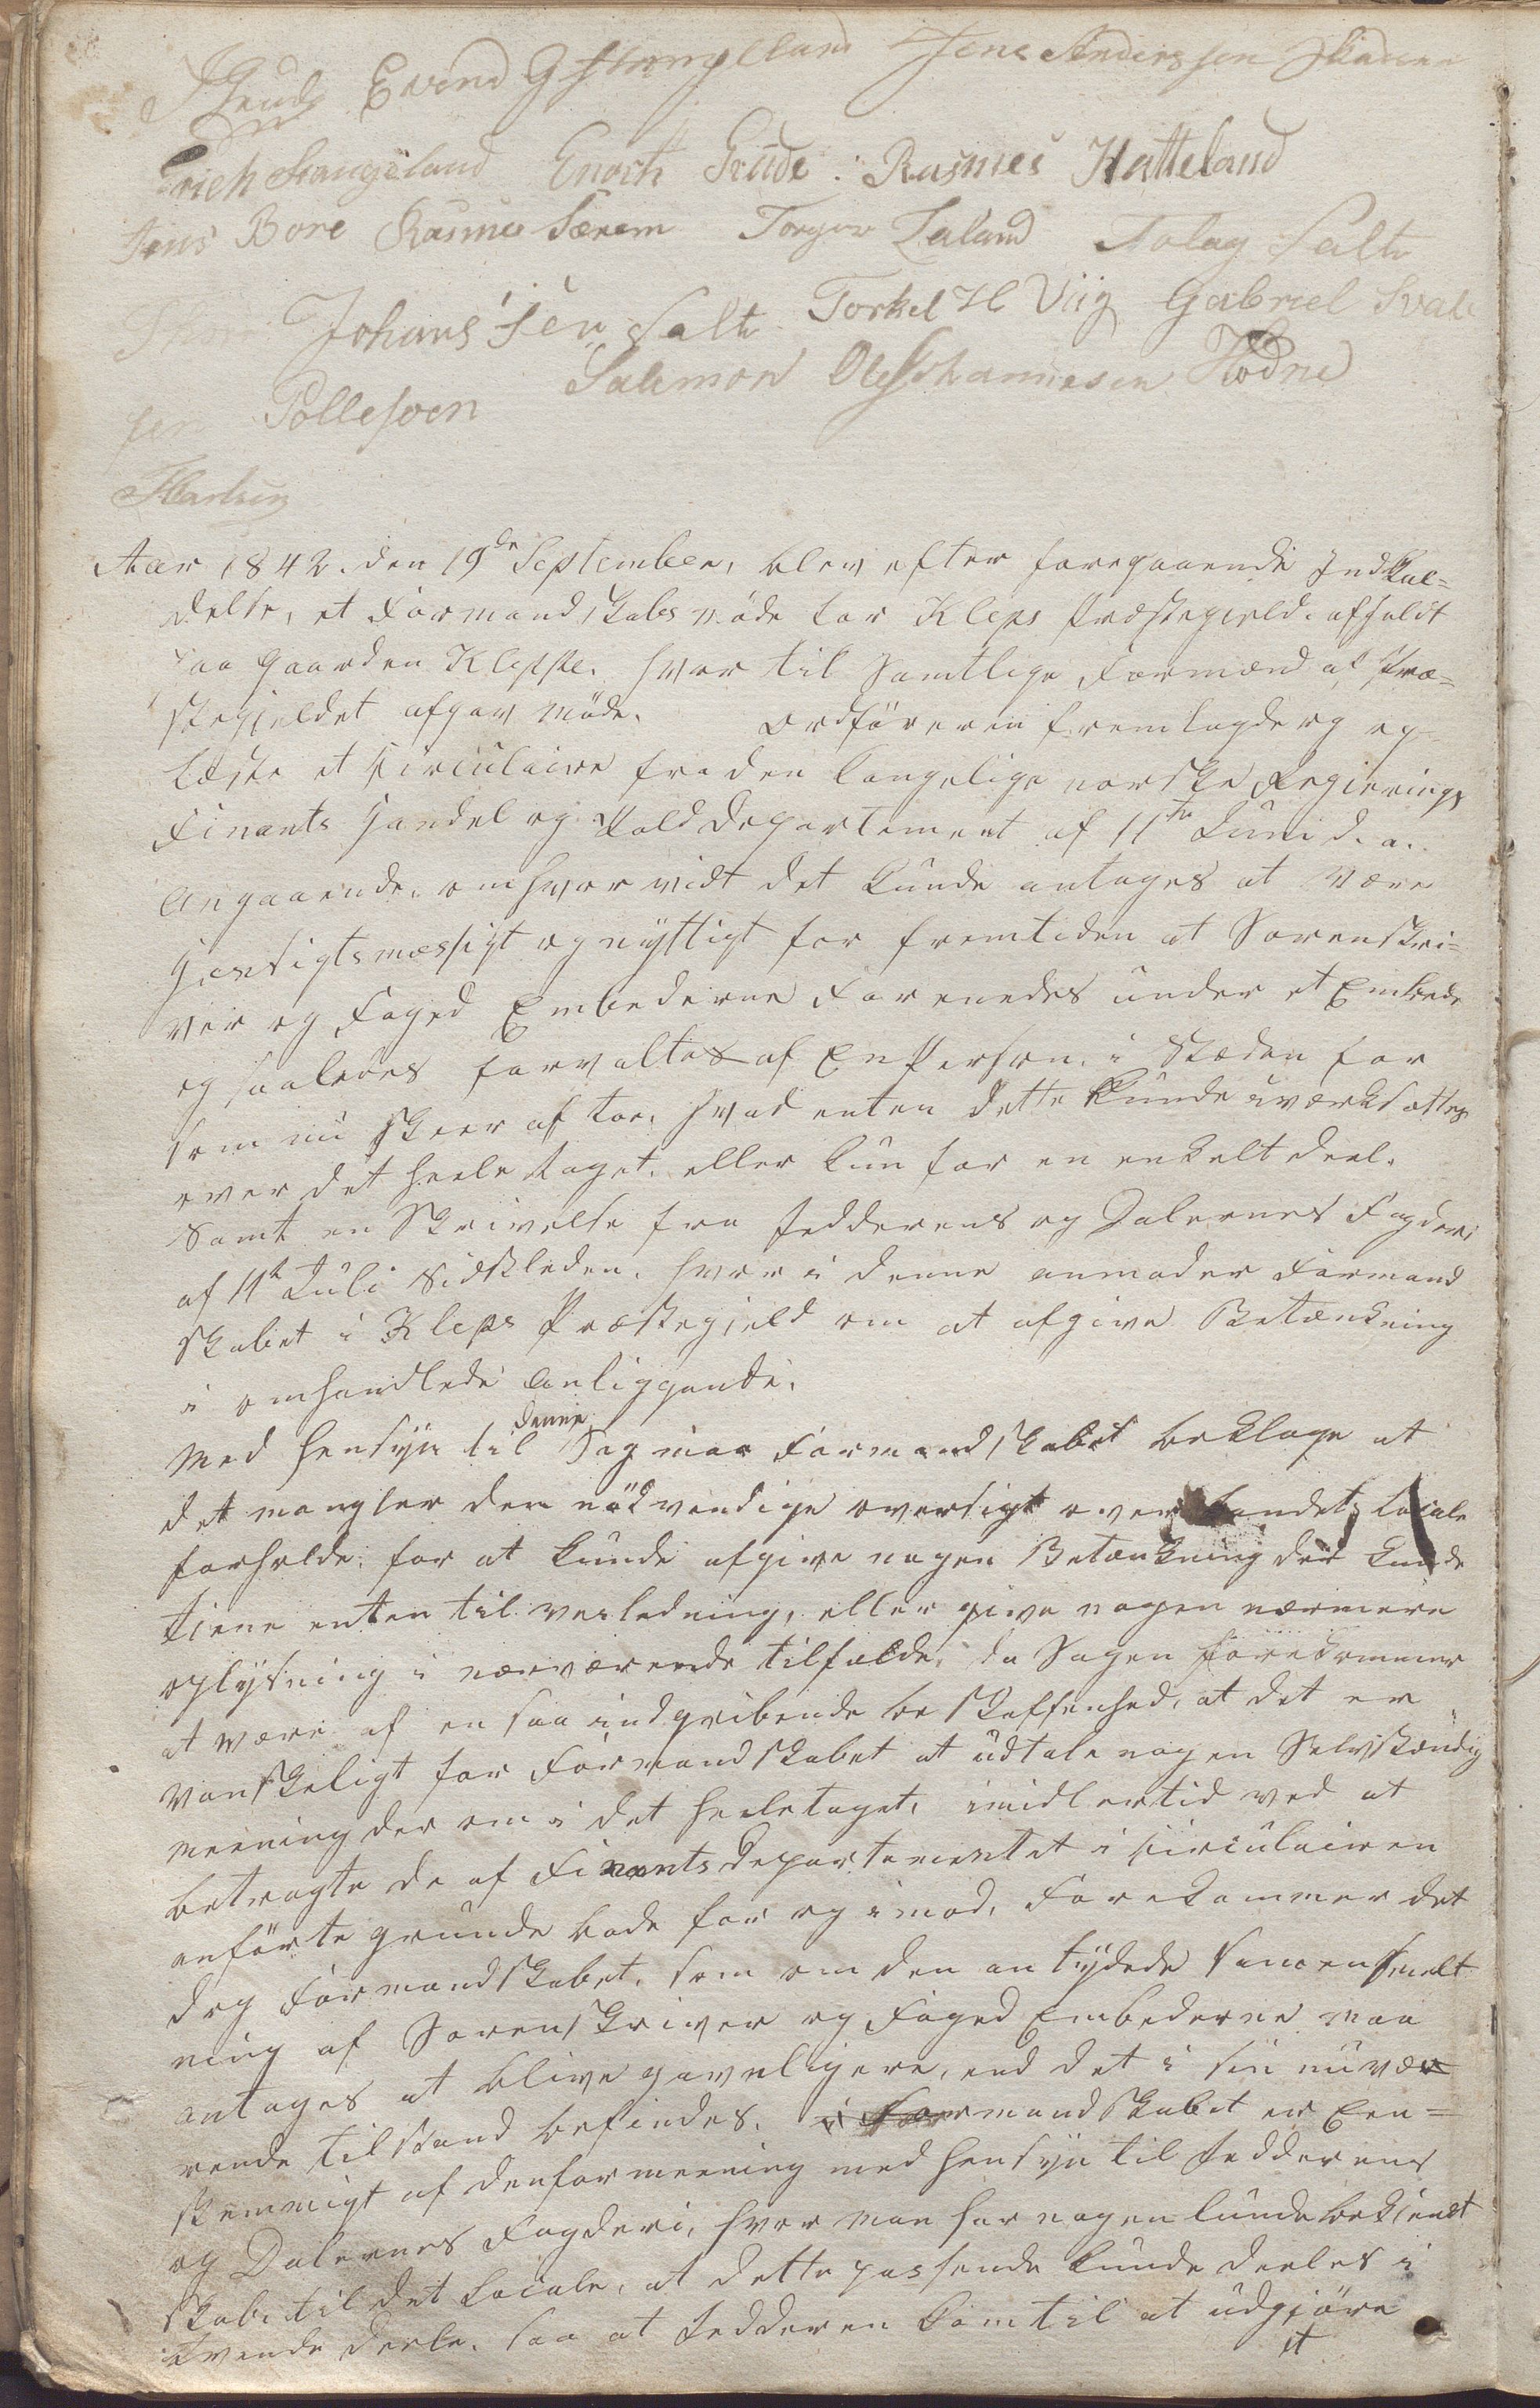 Evind G Stangelland Jens Anderssen
Erich Stangeland Enoch Grude: Rasmus Hatteland
Jens Bore Rasmus Særem Torger Laland Tolag Salte
Johans Sen Salte Torkel H Viig Gabriel Svale
Pollesven Salemon Ole Johannesen Hodne

Aar 1842. den 19de September, blev efter foregaaende Indkal=
delse, et Formandskabs møde for Kleps Præstegield. afholdt
paa Gaarden Kleppe. hvor til Samtlige Formænd af Præ=
stegieldet afgav møde. Ordføreren fremlagde og op-
læste et Circulaire fra den kongelige norske Regierings
Finants Handel og Told Departement af 11te Juni d. a.
angaaende. om hvor vidt det kunde antages at være
Hensigtsmæssigt og nyttigt for fremtiden at Sorenskri=
ver og Foged Embederne Forenedes under et Embede
og saaledes forvaltes af En Person. i Stæden for
som nu skeer af toe. hvad enten dette kunde iværksættes
over det heele taget. eller kun for en enkelt deel.
Samt en Skrivelse fra Jedderens og Dalernes Fogderi
af 11te Juli Sidstleden. hvor i denne anmoder Formand
skabet i Kleps Præstegield om at afgive Betænkning
i omhandlede anliggende.
Med hensyn til denne Sag maa Formandskabet beklage at
det mangler den nødvendige oversigt over Landets Locale
forholde. for at kunde afgive nogen Betænkning der kunde
tiene enten til veiledning, eller give nogen nærmere
oplysning i nærværende tilfælde, da Sagen forekommer
at være af en saa indgribende beskaffenhed, at det er
vanskeligt for Formandskabet at udtale nogen Selvstændig
meening der om i det heeletaget, imidlertid ved at
betragte de af Finants Departementet i Circulairen
anførte grunde bode for og imod, Forekommer det
dog Formandskabet, som om den antydede Sammensmelt
ning af Sorenskriver og Foged Embederne maa
antages at blive gavnligere, end det i sin nuvæ=
rende tilstand befindes. i Formandskabet er Een=
stemmigt af den formeening med hensyn til Jedderens
og Dalernes Fogderi, hvor man har nogenlunde bekiendt
skab til det Locale, at dette passende kunde deeles i
tvende deele. saa at Jedderen kom til at udgjøre
et